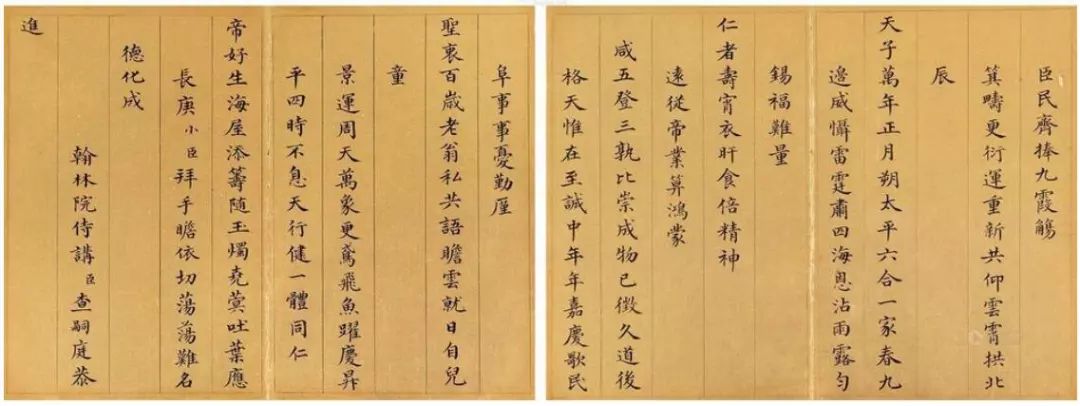 臣民齊捧九霞觴
箕疇更衍運重新共仰雲霄拱北
辰
天子萬年正月朔太平六合一家春九
邊威懾雷霆肅四海恩沾雨露勻
錫福難量
仁者壽宵衣旰食倍精神
遠從帝業算鴻蒙
咸五登三孰比崇成物已徵久道後
格天惟在至誠中年年嘉慶歌民
阜事事憂勤厪
聖衷百歲老翁私共語瞻雲就日自兒
童
景運周天萬象更鳶飛魚躍慶昇
平四時不息天行健一體同仁
帝好生海屋添籌隨玉燭堯蓂吐葉應
長庚小臣拜手瞻依切蕩蕩難名
德化成
翰林院侍講臣查嗣庭恭
進